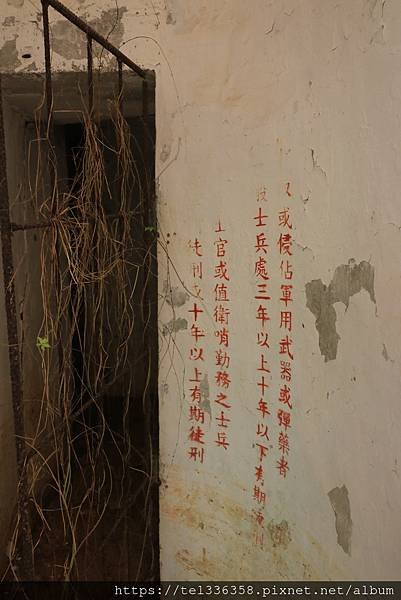 或侵佔軍用武器或彈藥者
士兵處三年以上十年以下有期徒刑
官或值衛哨勤務之士兵
徒刑或十年以上有期徒刑
https://tel336358.pixnet.net/album